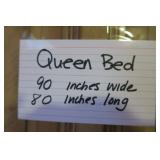 Queen Bed
90 inches wide
80 inches long